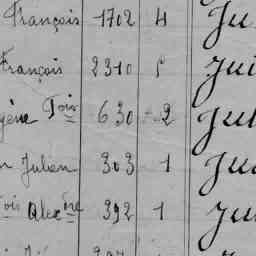 François 1702 4 Ju
François 2310 5 Jui
gène Fois 630 2 Jul
n Julien 303 1 Jui
ois Alexdre 392 1 Jui